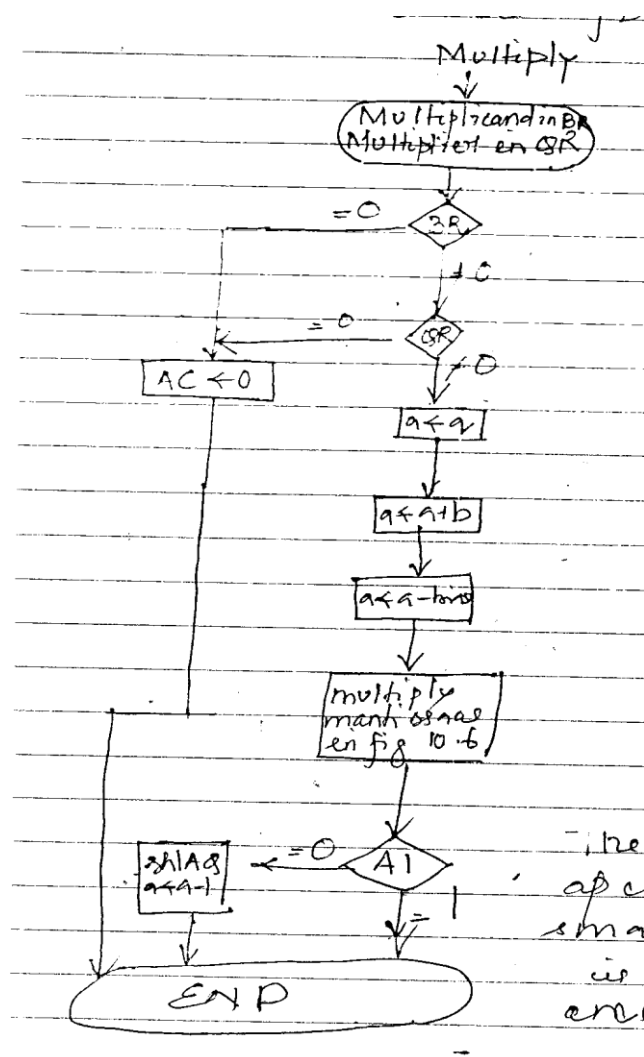 Multiply
Multiplicand in BR
Multiplier in QR
= 0
BR
≠ 0
= 0
QR
≠ 0
AC ← 0
a ← q
a ← a+b
a ← a-bias
multiply
mantissa as
in fig 10.6
= 0
A1
shl AQ
a ← a-1
= 1
The
sma
is
END